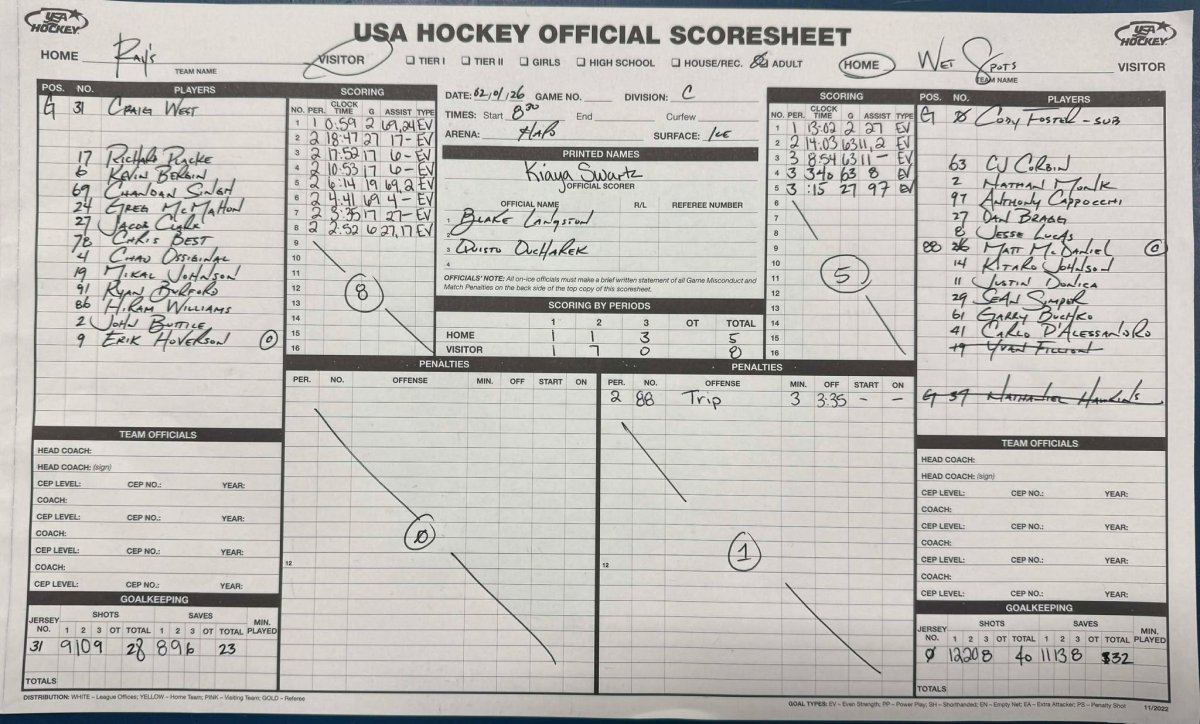 USA HOCKEY
USA HOCKEY OFFICIAL SCORESHEET
USA HOCKEY
HOME Ray's VISITOR
TEAM NAME
☐ TIER I ☐ TIER II ☐ GIRLS ☐ HIGH SCHOOL ☐ HOUSE/REC. ADULT
HOME Wet Spots VISITOR
TEAM NAME
POS. NO. PLAYERS
G 31 Craig West
17 Richard Placke
6 Kevin Bergin
69 Chandan Singh
24 Greg McMahon
27 Jacob Clark
78 Chris Best
4 Chad Ossiginal
19 Mikal Johnson
91 Ryan Burford
86 Hiram Williams
2 John Buttice
9 Erik Hoverson
SCORING
NO. PER. CLOCK TIME G ASSIST TYPE
1 1 0:59 2 69,24 EV
2 2 18:47 27 17 - EV
3 2 17:52 17 6 - EV
4 2 10:53 17 6 - EV
5 2 6:14 19 69,2 EV
6 2 4:41 69 4 - EV
7 2 3:35 17 27 - EV
8 2 2:52 6 27,17 EV
9
10
11
12
13
14
15
16
8
DATE: 02,01,26 GAME NO. DIVISION: C
TIMES: Start 8:30 End Curfew
ARENA: HAPO SURFACE: Ice
PRINTED NAMES
Kiaya Swartz
OFFICIAL SCORER
OFFICIAL NAME R/L REFEREE NUMBER
1 Blake Langston
3 Quisto Oucharek
4
OFFICIALS' NOTE: All on-ice officials must make a brief written statement of all Game Misconduct and
Match Penalties on the back side of the top copy of this scoresheet.
SCORING BY PERIODS
1 2 3 OT TOTAL
HOME 1 1 3 5
VISITOR 1 7 0 8
SCORING
NO. PER. CLOCK TIME G ASSIST TYPE
1 1 13:02 2 27 EV
2 2 14:03 63 11, 2 EV
3 3 8:54 63 11 - EV
4 3 3:40 63 8 EV
5 3 :15 27 97 EV
6
7
8
9
10
11
12
13
14
15
16
5
POS. NO. PLAYERS
G Ø Cody Foster - sub
63 CJ Corbin
2 Nathan Monk
97 Anthony Cappocchi
27 Dan Bragg
8 Jesse Lucas
88 Matt McDaniel
14 Kitaro Johnson
11 Justin Donica
29 Sean Simper
61 Garry Buchko
41 Carlo D'Alessandro
19 Yvan Fillion
G 37 Nathaniel Hawkins
PENALTIES
PER. NO. OFFENSE MIN. OFF START ON
12
Ø
PENALTIES
PER. NO. OFFENSE MIN. OFF START ON
2 88 Trip 3 3:35 - -
12
1
TEAM OFFICIALS
HEAD COACH:
HEAD COACH: (sign)
CEP LEVEL: CEP NO.: YEAR:
COACH:
CEP LEVEL: CEP NO.: YEAR:
COACH:
CEP LEVEL: CEP NO.: YEAR:
COACH:
CEP LEVEL: CEP NO.: YEAR:
GOALKEEPING
JERSEY NO. SHOTS 1 2 3 OT TOTAL SAVES 1 2 3 OT TOTAL MIN. PLAYED
31 9 10 9 28 8 9 6 23
TOTALS
TEAM OFFICIALS
HEAD COACH:
HEAD COACH: (sign)
CEP LEVEL: CEP NO.: YEAR:
COACH:
CEP LEVEL: CEP NO.: YEAR:
COACH:
CEP LEVEL: CEP NO.: YEAR:
COACH:
CEP LEVEL: CEP NO.: YEAR:
GOALKEEPING
JERSEY NO. SHOTS 1 2 3 OT TOTAL SAVES 1 2 3 OT TOTAL MIN. PLAYED
Ø 12 20 8 40 11 13 8 32
TOTALS
DISTRIBUTION: WHITE – League Offices; YELLOW – Home Team; PINK – Visiting Team; GOLD – Referee
GOAL TYPES: EV – Even Strength; PP – Power Play; SH – Shorthanded; EN – Empty Net; EA – Extra Attacker; PS – Penalty Shot 11/2022